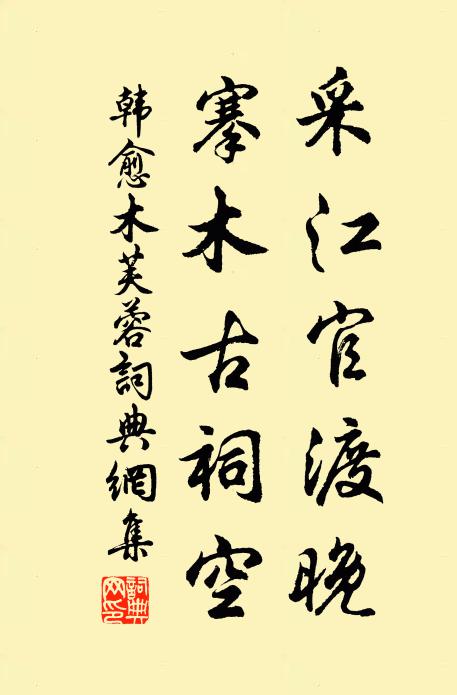 采江官渡晚
搴木古祠空
韩愈木芙蓉詞典網集
詞典网印